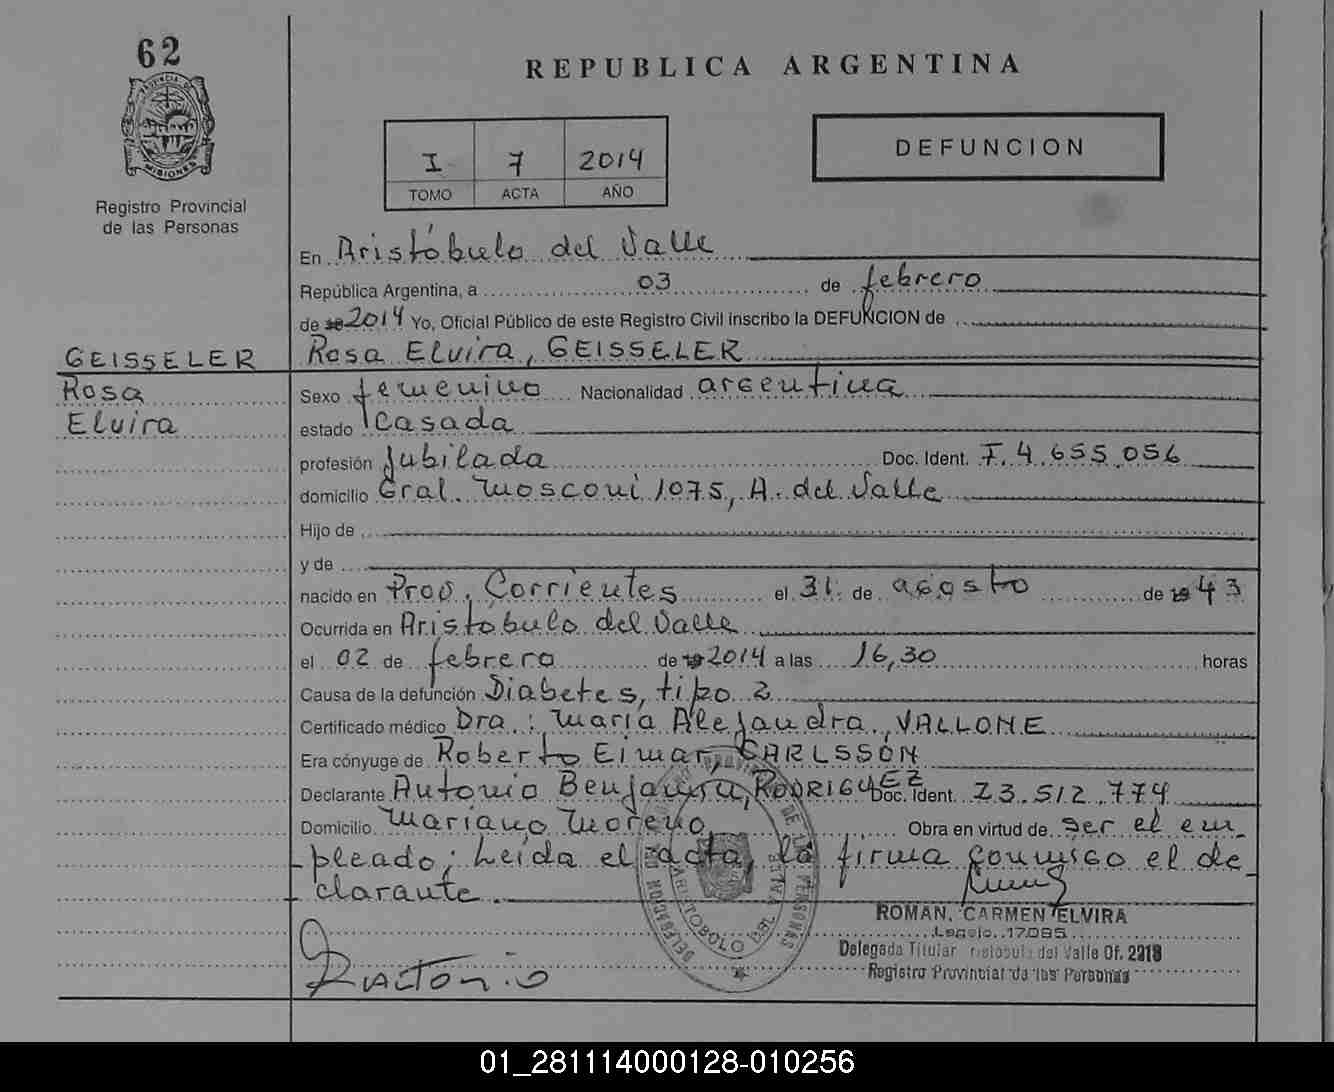 62
PROVINCIA DE
MISIONES
Registro Provincial
de las Personas
REPUBLICA ARGENTINA
I 7 2014
TOMO ACTA AÑO
DEFUNCION
En Aristóbulo del Valle
República Argentina, a 03 de febrero
de 2014 Yo, Oficial Público de este Registro Civil inscribo la DEFUNCION de
GEISSELER
Rosa
Elvira
Rosa Elvira, GEISSELER
Sexo femenino Nacionalidad argentina
estado Casada
profesión Jubilada Doc. Ident. F. 4.655.056
domicilio Gral. Mosconi 1075, A. del Valle
Hijo de
y de
nacido en Prov. Corrientes el 31 de agosto de 19 43
Ocurrida en Aristóbulo del Valle
el 02 de febrero de 2014 a las 16,30 horas
Causa de la defunción Diabetes, tipo 2
Certificado médico Dra.: María Alejandra, VALLONE
Era cónyuge de Roberto Eimar, CARLSSON
Declarante Antonio Benjamín, RODRIGUEZ Doc. Ident. 23.512.774
Domicilio Mariano Moreno Obra en virtud de ser el em_
pleado; Leída el acta, la firma conmigo el de_
clarante.
ROMAN, CARMEN ELVIRA
Legajo 17.095
Delegada Titular Aristobulo del Valle Of. 2218
Registro Provincial de las Personas
01_281114000128-010256